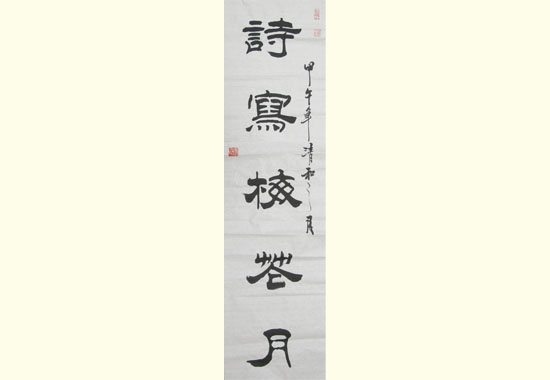 甲午年清和之月
詩寫梅花月